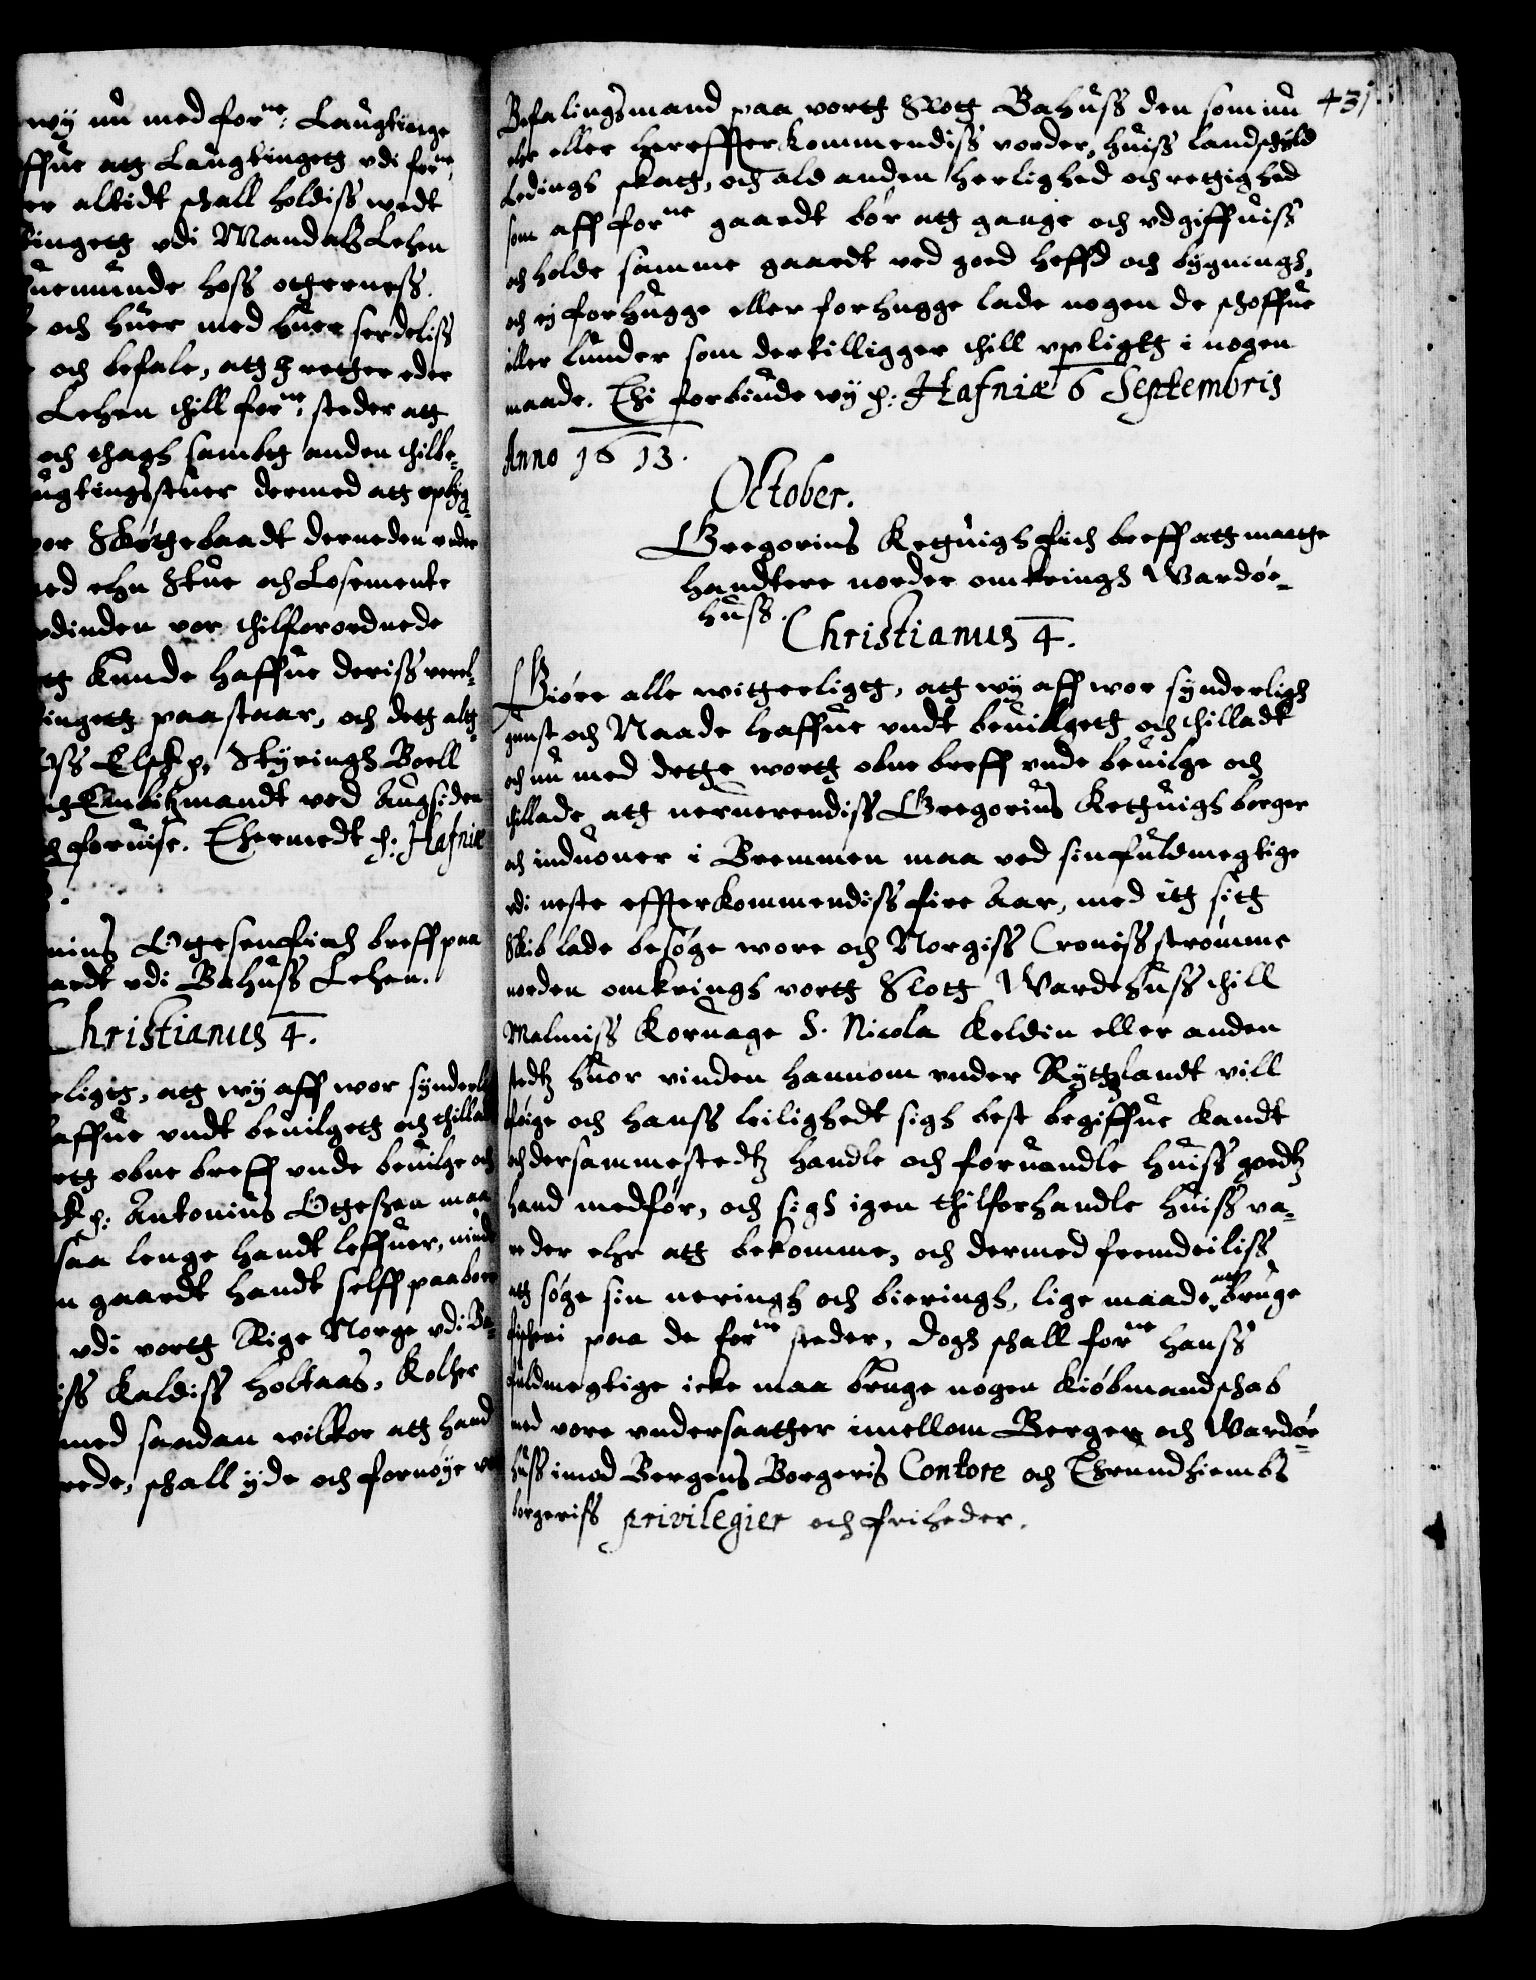 wy nu med forne: Laugtinge
ffue att Laugtingett vdi forne
er altidt schall holdiss wedt
tingett vdi Mandals Lehen
uemunde hoss otterness.
och huer med huer serdeliss
och befale, att I retter eder
Lehen thill forne: steder att
och thagh sambt anden thilbe-
ugtings stuer dermed att opbyg-
vor Skøttebaadt derneden vnder
ed ehn Stue och Losemente
vdinden vor thilforordnede
tt kunde haffue deriss verel-
tingett paastaar, och dett alt-
oss Elsk. p. Styringh Boell
Embitzmandt ved Augsiden
foruise. Thermedt p: Hafniæ
nius Ottesen fich breff paa
aardt vdi Bahuss Lehen.
Christianus 4.
eligt, att wy aff wor synderl
affue vndt beuilgett och thillad
ett obne breff vnde beuilge och
k p: Antonius Ottesen maa
saa lenge handt leffuer, niude
n gaardt handt selff paaboer
vdi vortt Rige Norge vdi Ba-
iss kaldiss Holtaas, Kolher
med saadan vilkor att hand
rede, schall yde och fornøye vor
431
Befalingsmand paa vortt Slott Bahuss den som nu
ehr eller hereffter kommendiss vorder, huiss landschyld
Ledings skatt, och ald anden herlighed och rettighed
som aff forne gaardt bør att gange och vdgiffuiss
och holde samme gaardt ved goed heffd och bygningh,
och ej forhugge eller forhugge lade nogen de schoffue
eller lunder som dertilligger thill vpligtt i nogen
maade. Thi forbiude wy p: Hafniæ 6 Septembris
Anno 1613.
October.
Gregorius Kettuigh fich breff att maatte
handtere norder omkringh Wardøe-
huss.
Christianus 4.
Giøre alle witterligtt, att wy aff wor synderligh
gunst och Naade haffue vndt beuillgett och thilladt
och nu med dette wortt obne breff vnde beuilge och
thillade att neruerendiss Gregorius Kettuigh borger
och induoner i Bremmen maa ved sin fuldmegtige
vdi neste effterkommendiss fire Aar, med itt sitt
Skib lade besøge wore och Norgiss Croniss strømme
norden omkringh vortt Slott Wardehuss thill
Malmiss Koruage S. Nicola Keldin eller anden
stedtz huor vinden hannom vnder Rytzlandt vill
føige och hanss leilighedt sigh best begiffue kandt
och dersammestedtz handle och foruandle huiss goedtz
hand medfør, och sigh igen thilforhandle huiss va-
reder ehr att bekomme, och dermed fremdeiliss
att søge sin neringh och bieringh, lige maade att bruge
fischeri paa de forne steder, Dogh schall forne hanss
fuldmegtige icke maa bruge nogen kiøbmandschab
med vore vndersaatter imellom Bergen och Wardøe-
huss imod Bergens Borgeris Contore och Thrundhiembs
borgeriss privilegier och friheder.